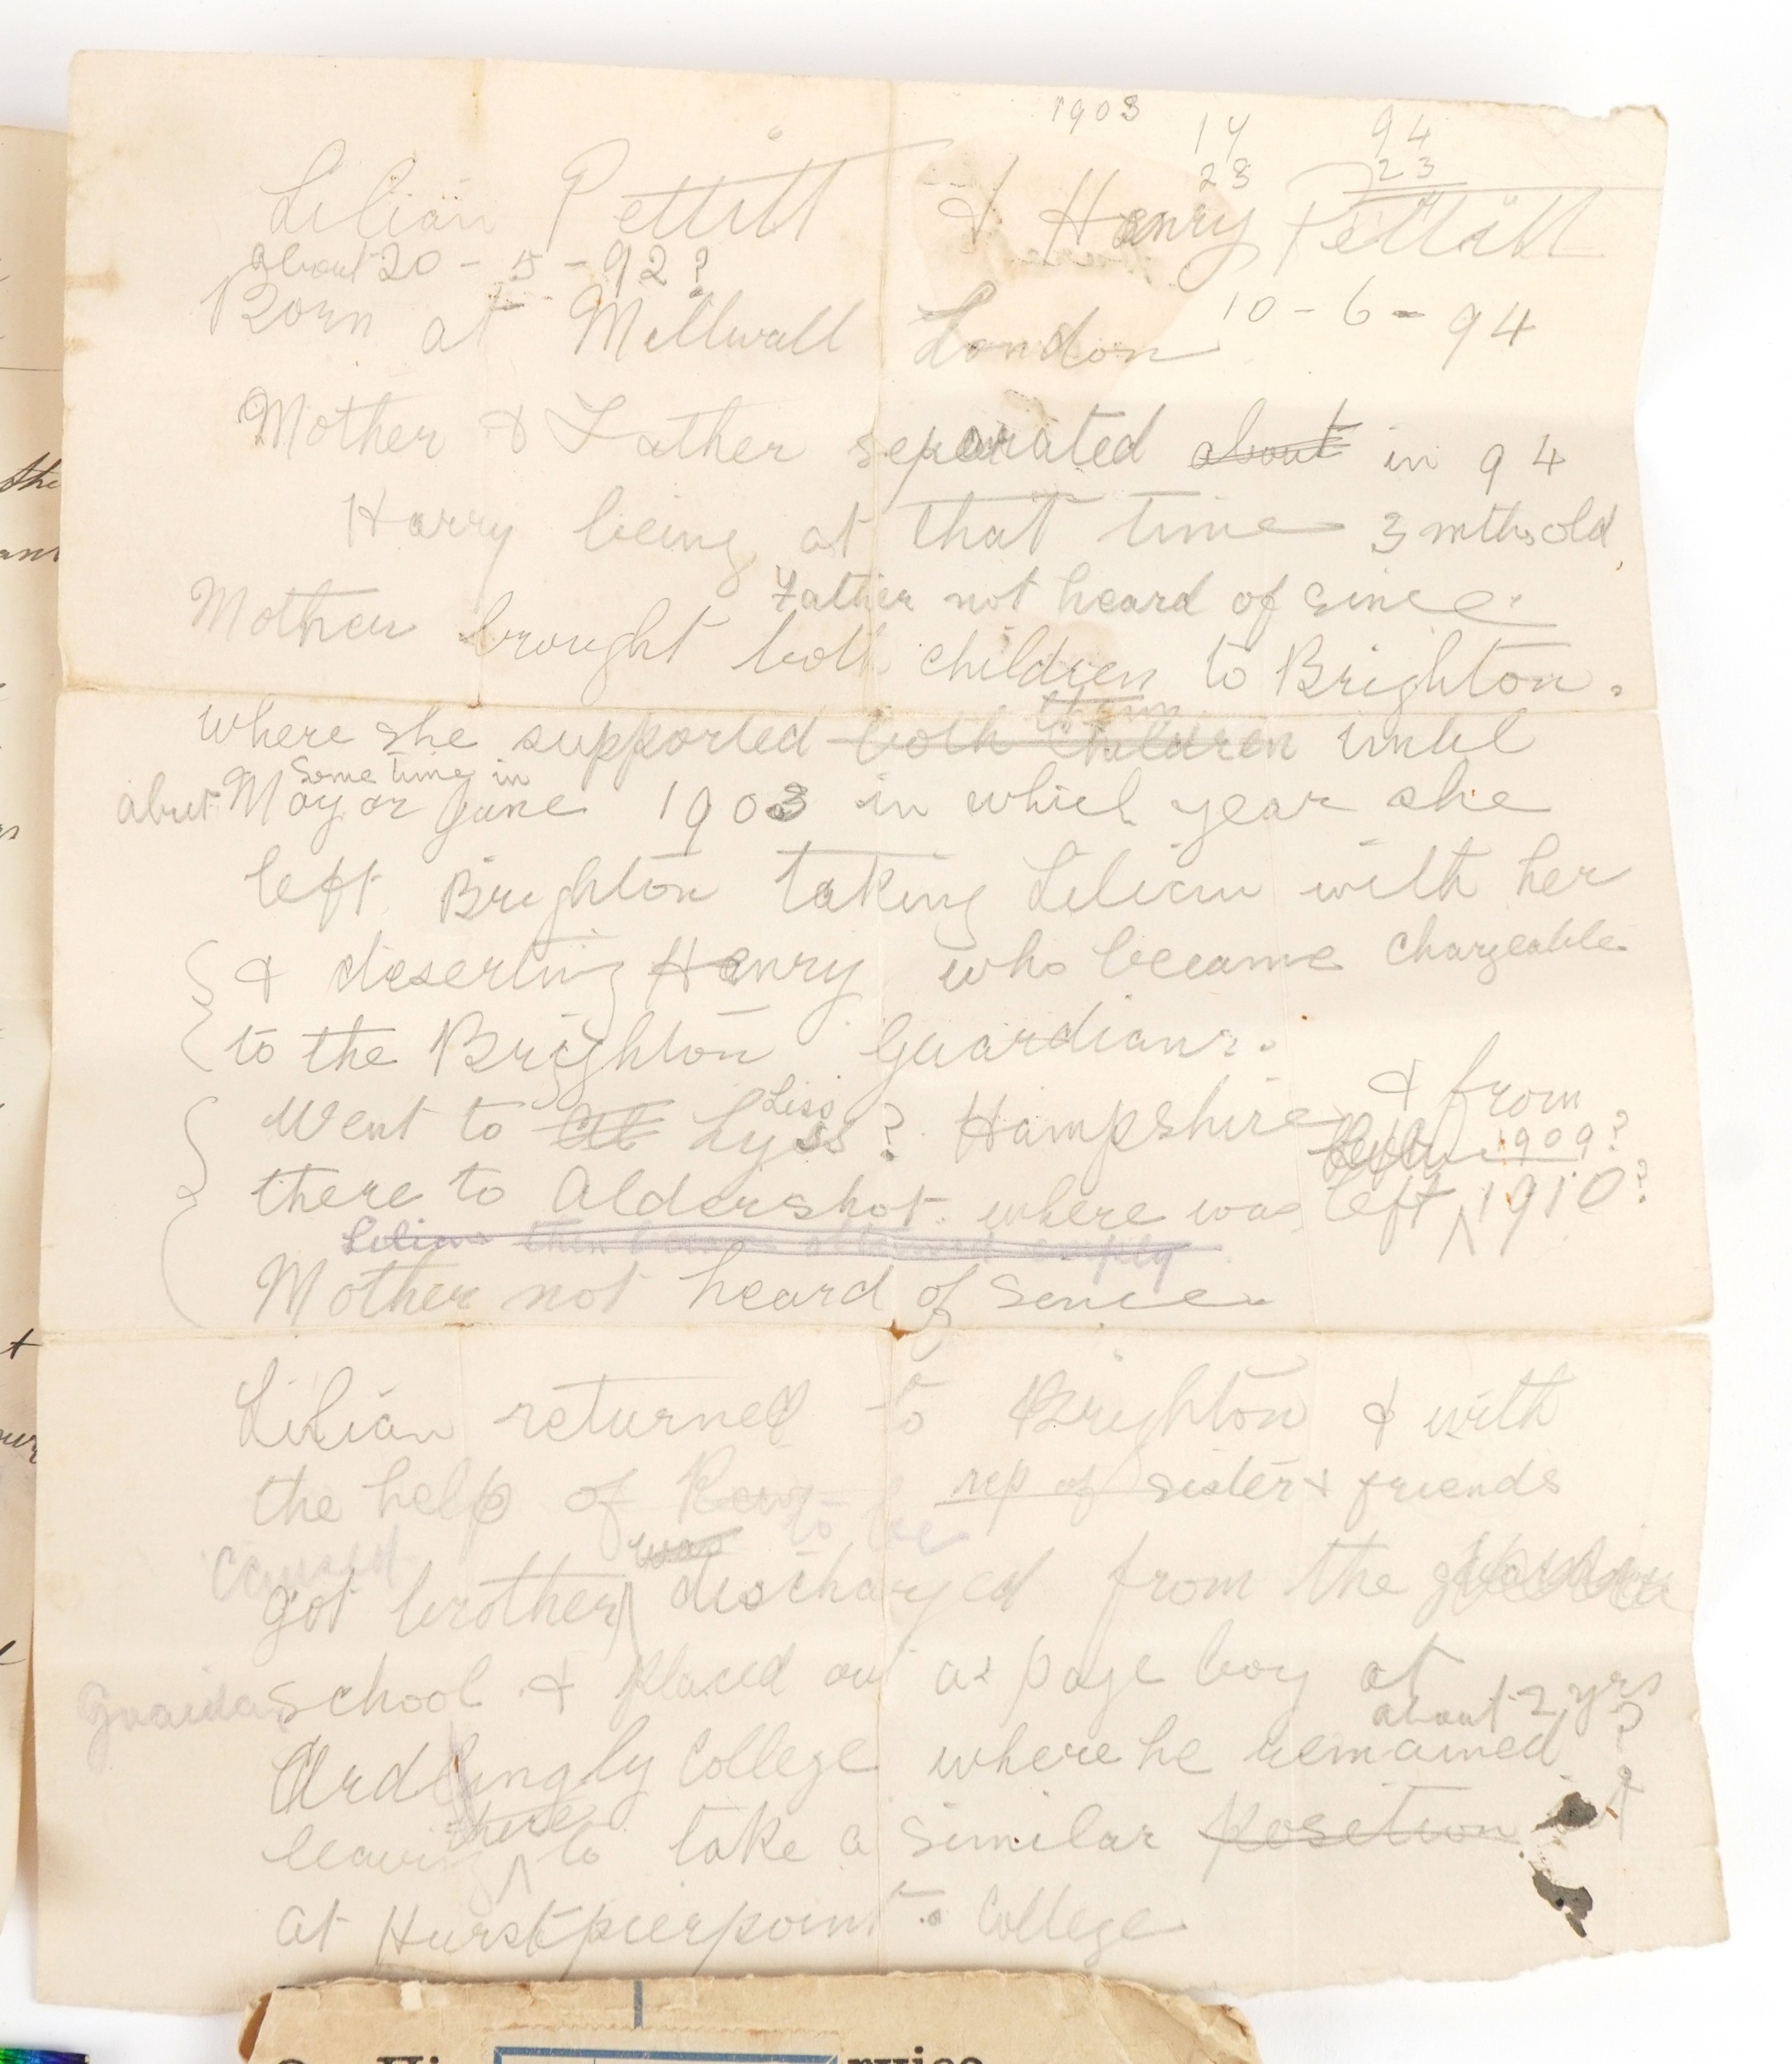 1903 14 94
28 23
Lilian Pettitt & Henry Pettitt
about 20 - 5 - 92?
Born at Millwall London 10 - 6 - 94
Mother & Father separated about in 94
Harry being at that time 3 mths old
Father not heard of since
Mother brought both children to Brighton.
them
where she supported both children until
Some time in
about May or June 1903 in which year she
left Brighton taking Lilian with her
& deserting Henry who became chargeable
to the Brighton Guardians.
Liss & from
Went to at Lyss? Hampshire
1909?
there to Aldershot. where was left 1910?
Lilian then became obtained employ
Mother not heard of sence
Lilian returned to Brighton & with
the help of rep of sister & friends
caused was to be
got brother discharged from the
Guardians school & placed out as page boy at
about 2 yrs ?
Ardlingly College where he remained
there
leaving to take a similar position
at Hurstpierpoint College
the
t